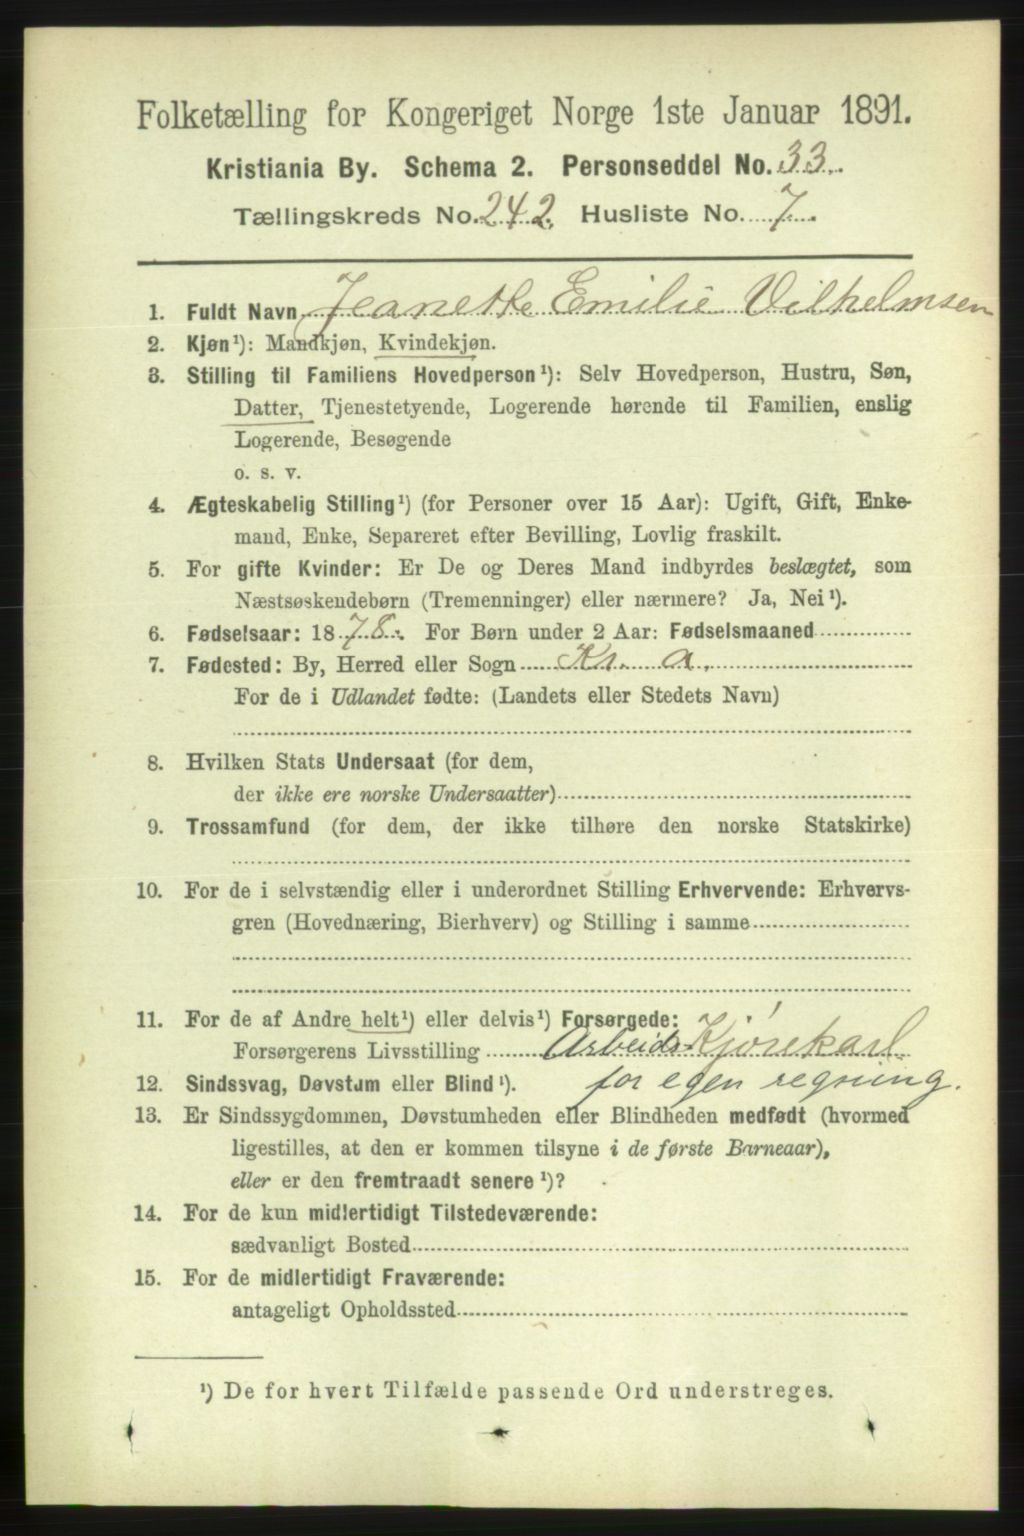 Folketælling for Kongeriget Norge 1ste Januar 1891.
Kristiania By. Schema 2. Personseddel No. 33.
Tællingskreds No. 242. Husliste No. 7.
1. Fuldt Navn Jeanette Emilie Vilhelmsen
2. Kjøn¹): Mandkjøn, Kvindekjøn.
3. Stilling til Familiens Hovedperson¹): Selv Hovedperson, Hustru, Søn,
Datter, Tjenestetyende, Logerende hørende til Familien, enslig
Logerende, Besøgende
o. s. v.
4. Ægteskabelig Stilling¹) (for Personer over 15 Aar): Ugift, Gift, Enke-
mand, Enke, Separeret efter Bevilling, Lovlig fraskilt.
5. For gifte Kvinder: Er De og Deres Mand indbyrdes beslægtet, som
Næstsøskendebørn (Tremenninger) eller nærmere? Ja, Nei¹).
6. Fødselsaar: 1878. For Børn under 2 Aar: Fødselsmaaned
7. Fødested: By, Herred eller Sogn Kr. a.
For de i Udlandet fødte: (Landets eller Stedets Navn)
8. Hvilken Stats Undersaat (for dem,
der ikke ere norske Undersaatter)
9. Trossamfund (for dem, der ikke tilhøre den norske Statskirke)
10. For de i selvstændig eller i underordnet Stilling Erhvervende: Erhvervs-
gren (Hovednæring, Bierhverv) og Stilling i samme
11. For de af Andre helt¹) eller delvis¹) Forsørgede:
Forsørgerens Livsstilling Arbeids-Kjørekarl
12. Sindssvag, Døvstum eller Blind¹). for egen regning.
13. Er Sindssygdommen, Døvstumheden eller Blindheden medfødt (hvormed
ligestilles, at den er kommen tilsyne i de første Barneaar),
eller er den fremtraadt senere¹)?
14. For de kun midlertidigt Tilstedeværende:
sædvanligt Bosted
15. For de midlertidigt Fraværende:
antageligt Opholdssted
¹) De for hvert Tilfælde passende Ord understreges.